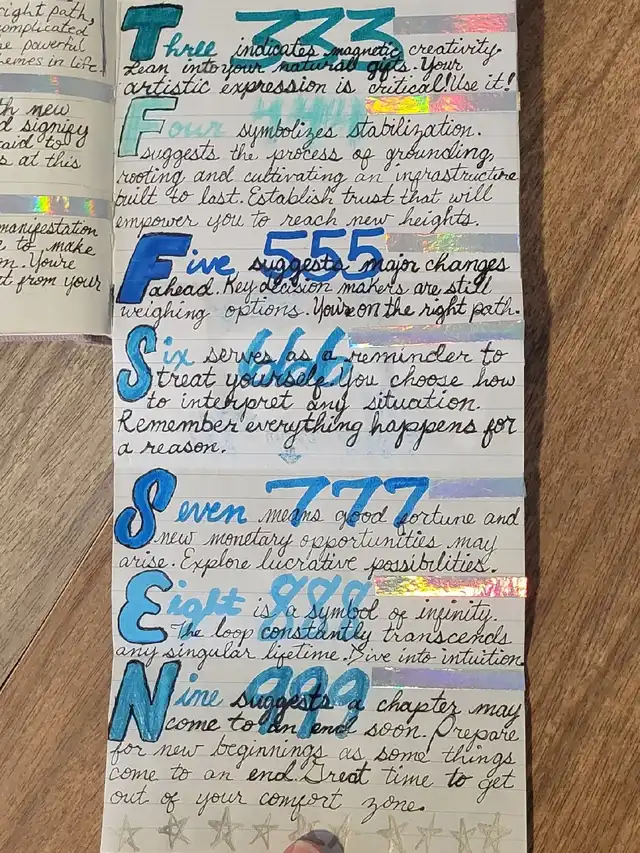 right path,
complicated
powerful
themes in life.
th new
d signify
said to
s at this
manifestation
e to make
m. You're
t from your
333
Three indicates magnetic creativity.
Lean into your natural gifts. Your
artistic expression is critical! Use it!
444
Four symbolizes stabilization.
suggests the process of grounding,
rooting and cultivating an infrastructure
built to last. Establish trust that will
empower you to reach new heights.
555
Five suggests major changes
ahead. Key decision makers are still
weighing options. You're on the right path.
666
Six serves as a reminder to
treat yourself. You choose how
to interpret any situation.
Remember everything happens for
a reason.
777
Seven means good fortune and
new monetary opportunities may
arise. Explore lucrative possibilities.
888
Eight is a symbol of infinity.
The loop constantly transcends
any singular lifetime. Dive into intuition.
999
Nine suggests a chapter may
come to an end soon. Prepare
for new beginnings as some things
come to an end. Great time to get
out of your comfort zone.